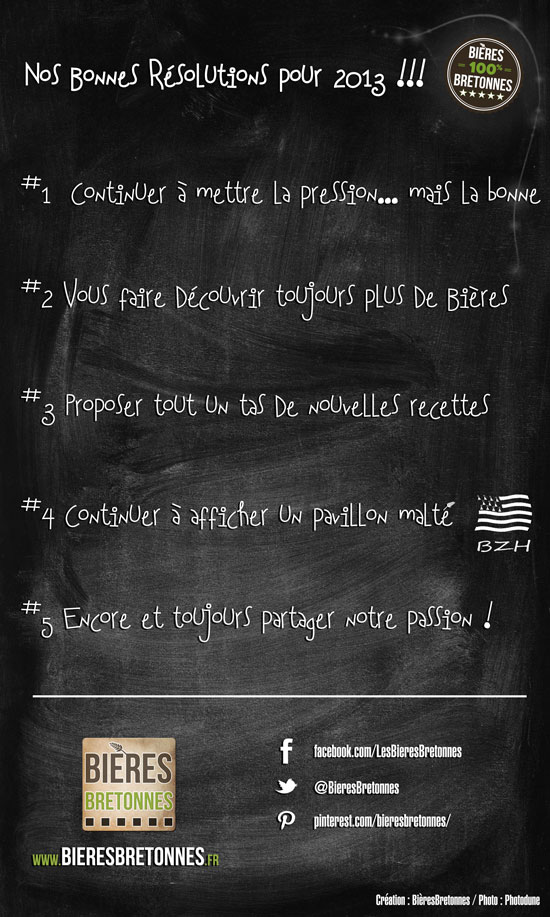 Nos Bonnes Résolutions pour 2013 !!!
BIÈRES
100%
BRETONNES
#1 Continuer à mettre la pression... mais la bonne
#2 Vous faire découvrir toujours plus de bières
#3 Proposer tout un tas de nouvelles recettes
#4 Continuer à afficher un pavillon malté
BZH
#5 Encore et toujours partager notre passion !
BIÈRES
BRETONNES
www.BIERESBRETONNES.FR
facebook.com/LesBieresBretonnes
@BieresBretonnes
pinterest.com/bieresbretonnes/
Création : BièresBretonnes / Photo : Photodune